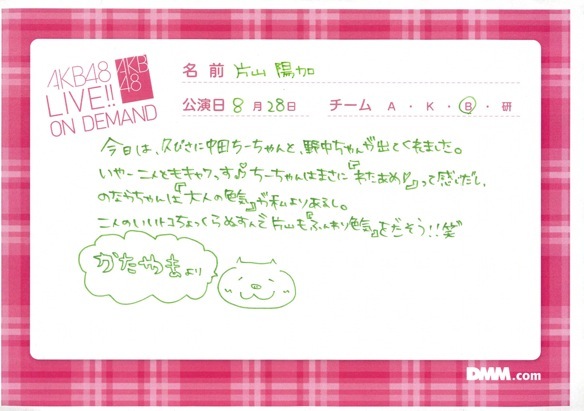 AKB48
LIVE!!
ON DEMAND
AKB
48
名前 片山 陽加
公演日 8 月 28 日 チーム A ・ K ・ B ・ 研
今日は、久びさに中田ちーちゃんと、野中ちゃんが出てくれました。
いやー二人ともキャワっす♪ ちーちゃんはまさに『わたあめ』って感じだし、
のなかちゃんは『大人の色気』が私よりあるし。
二人のいいトコちょっくらぬすんで片山も『ふんわり色気』をだそう!!笑
かたやまより
DMM.com